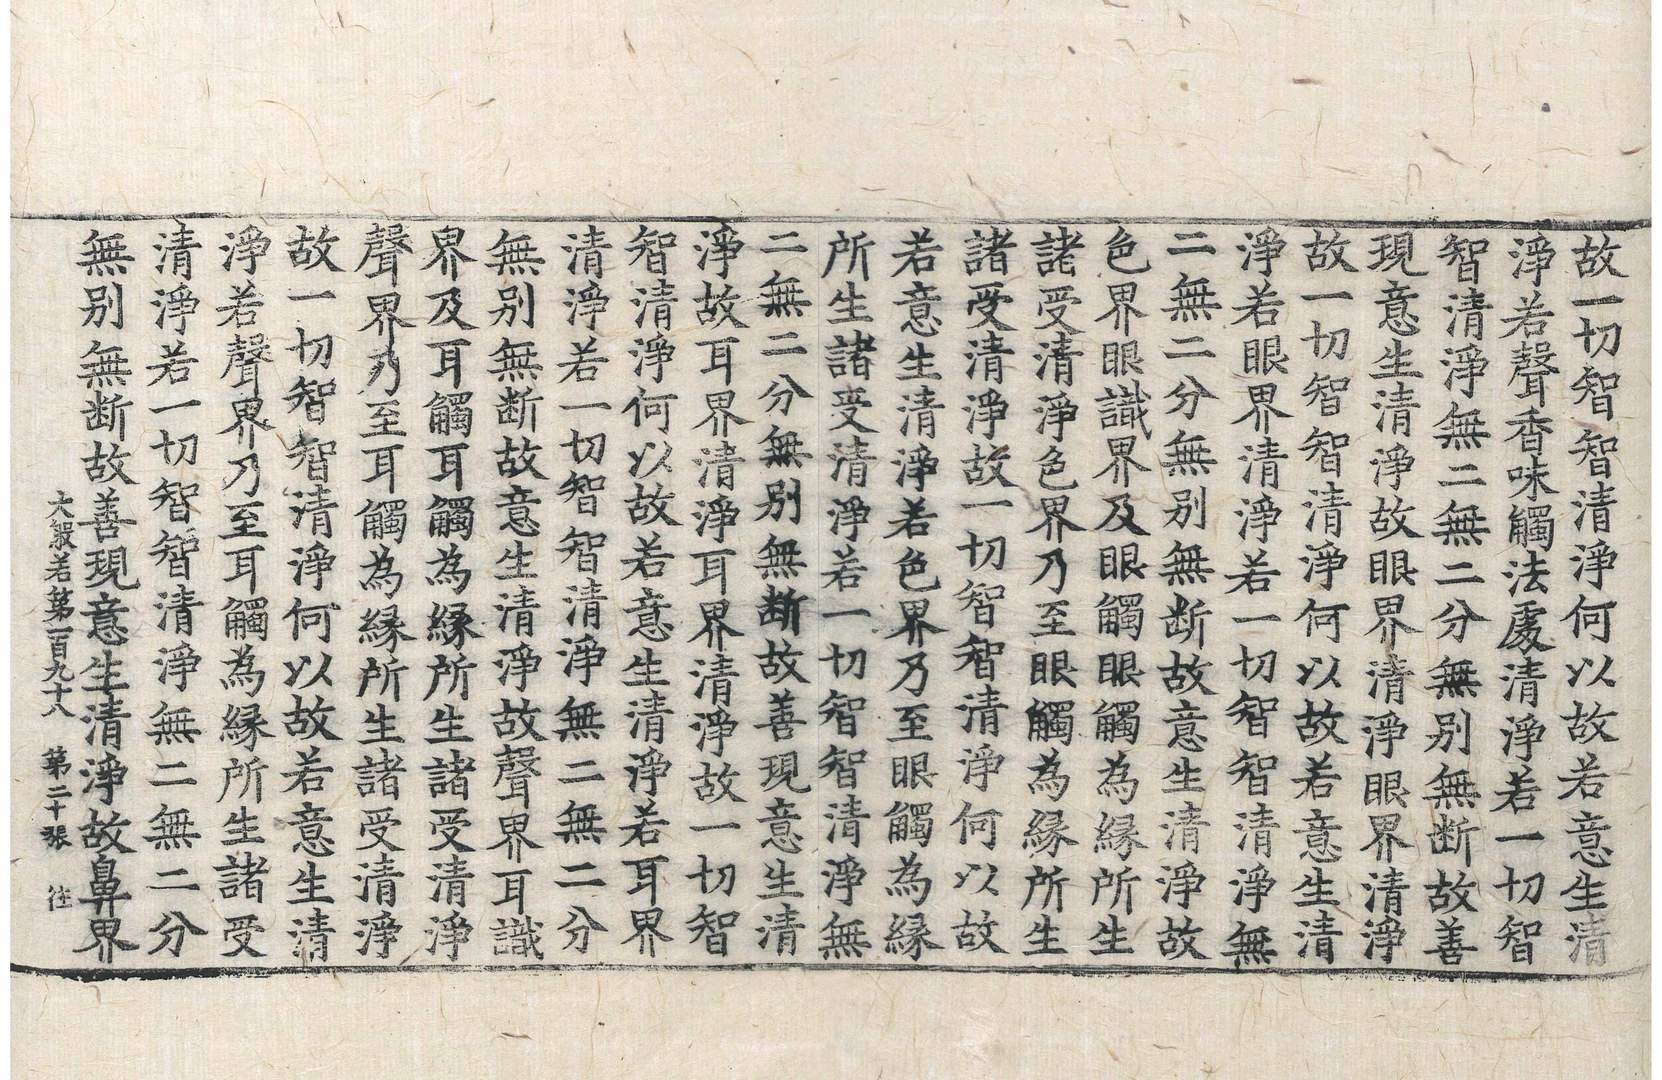 故一切智智清淨何以故若意生清
淨若聲香味觸法處清淨若一切智
智清淨無二無二分無別無断故善
現意生清淨故眼界清淨眼界清淨
故一切智智清淨何以故若意生清
淨若眼界清淨若一切智智清淨無
二無二分無別無断故意生清淨故
色界眼識界及眼觸眼觸為縁所生
諸受清淨色界乃至眼觸為縁所生
諸受清淨故一切智智清淨何以故
若意生清淨若色界乃至眼觸為縁
所生諸受清淨若一切智智清淨無
二無二分無別無断故善現意生清
淨故耳界清淨耳界清淨故一切智
智清淨何以故若意生清淨若耳界
清淨若一切智智清淨無二無二分
無別無断故意生清淨故聲界耳識
界及耳觸耳觸為縁所生諸受清淨
聲界乃至耳觸為縁所生諸受清淨
故一切智智清淨何以故若意生清
淨若聲界乃至耳觸為縁所生諸受
清淨若一切智智清淨無二無二分
無別無断故善現意生清淨故鼻界
大般若第一百九十八 第二十張